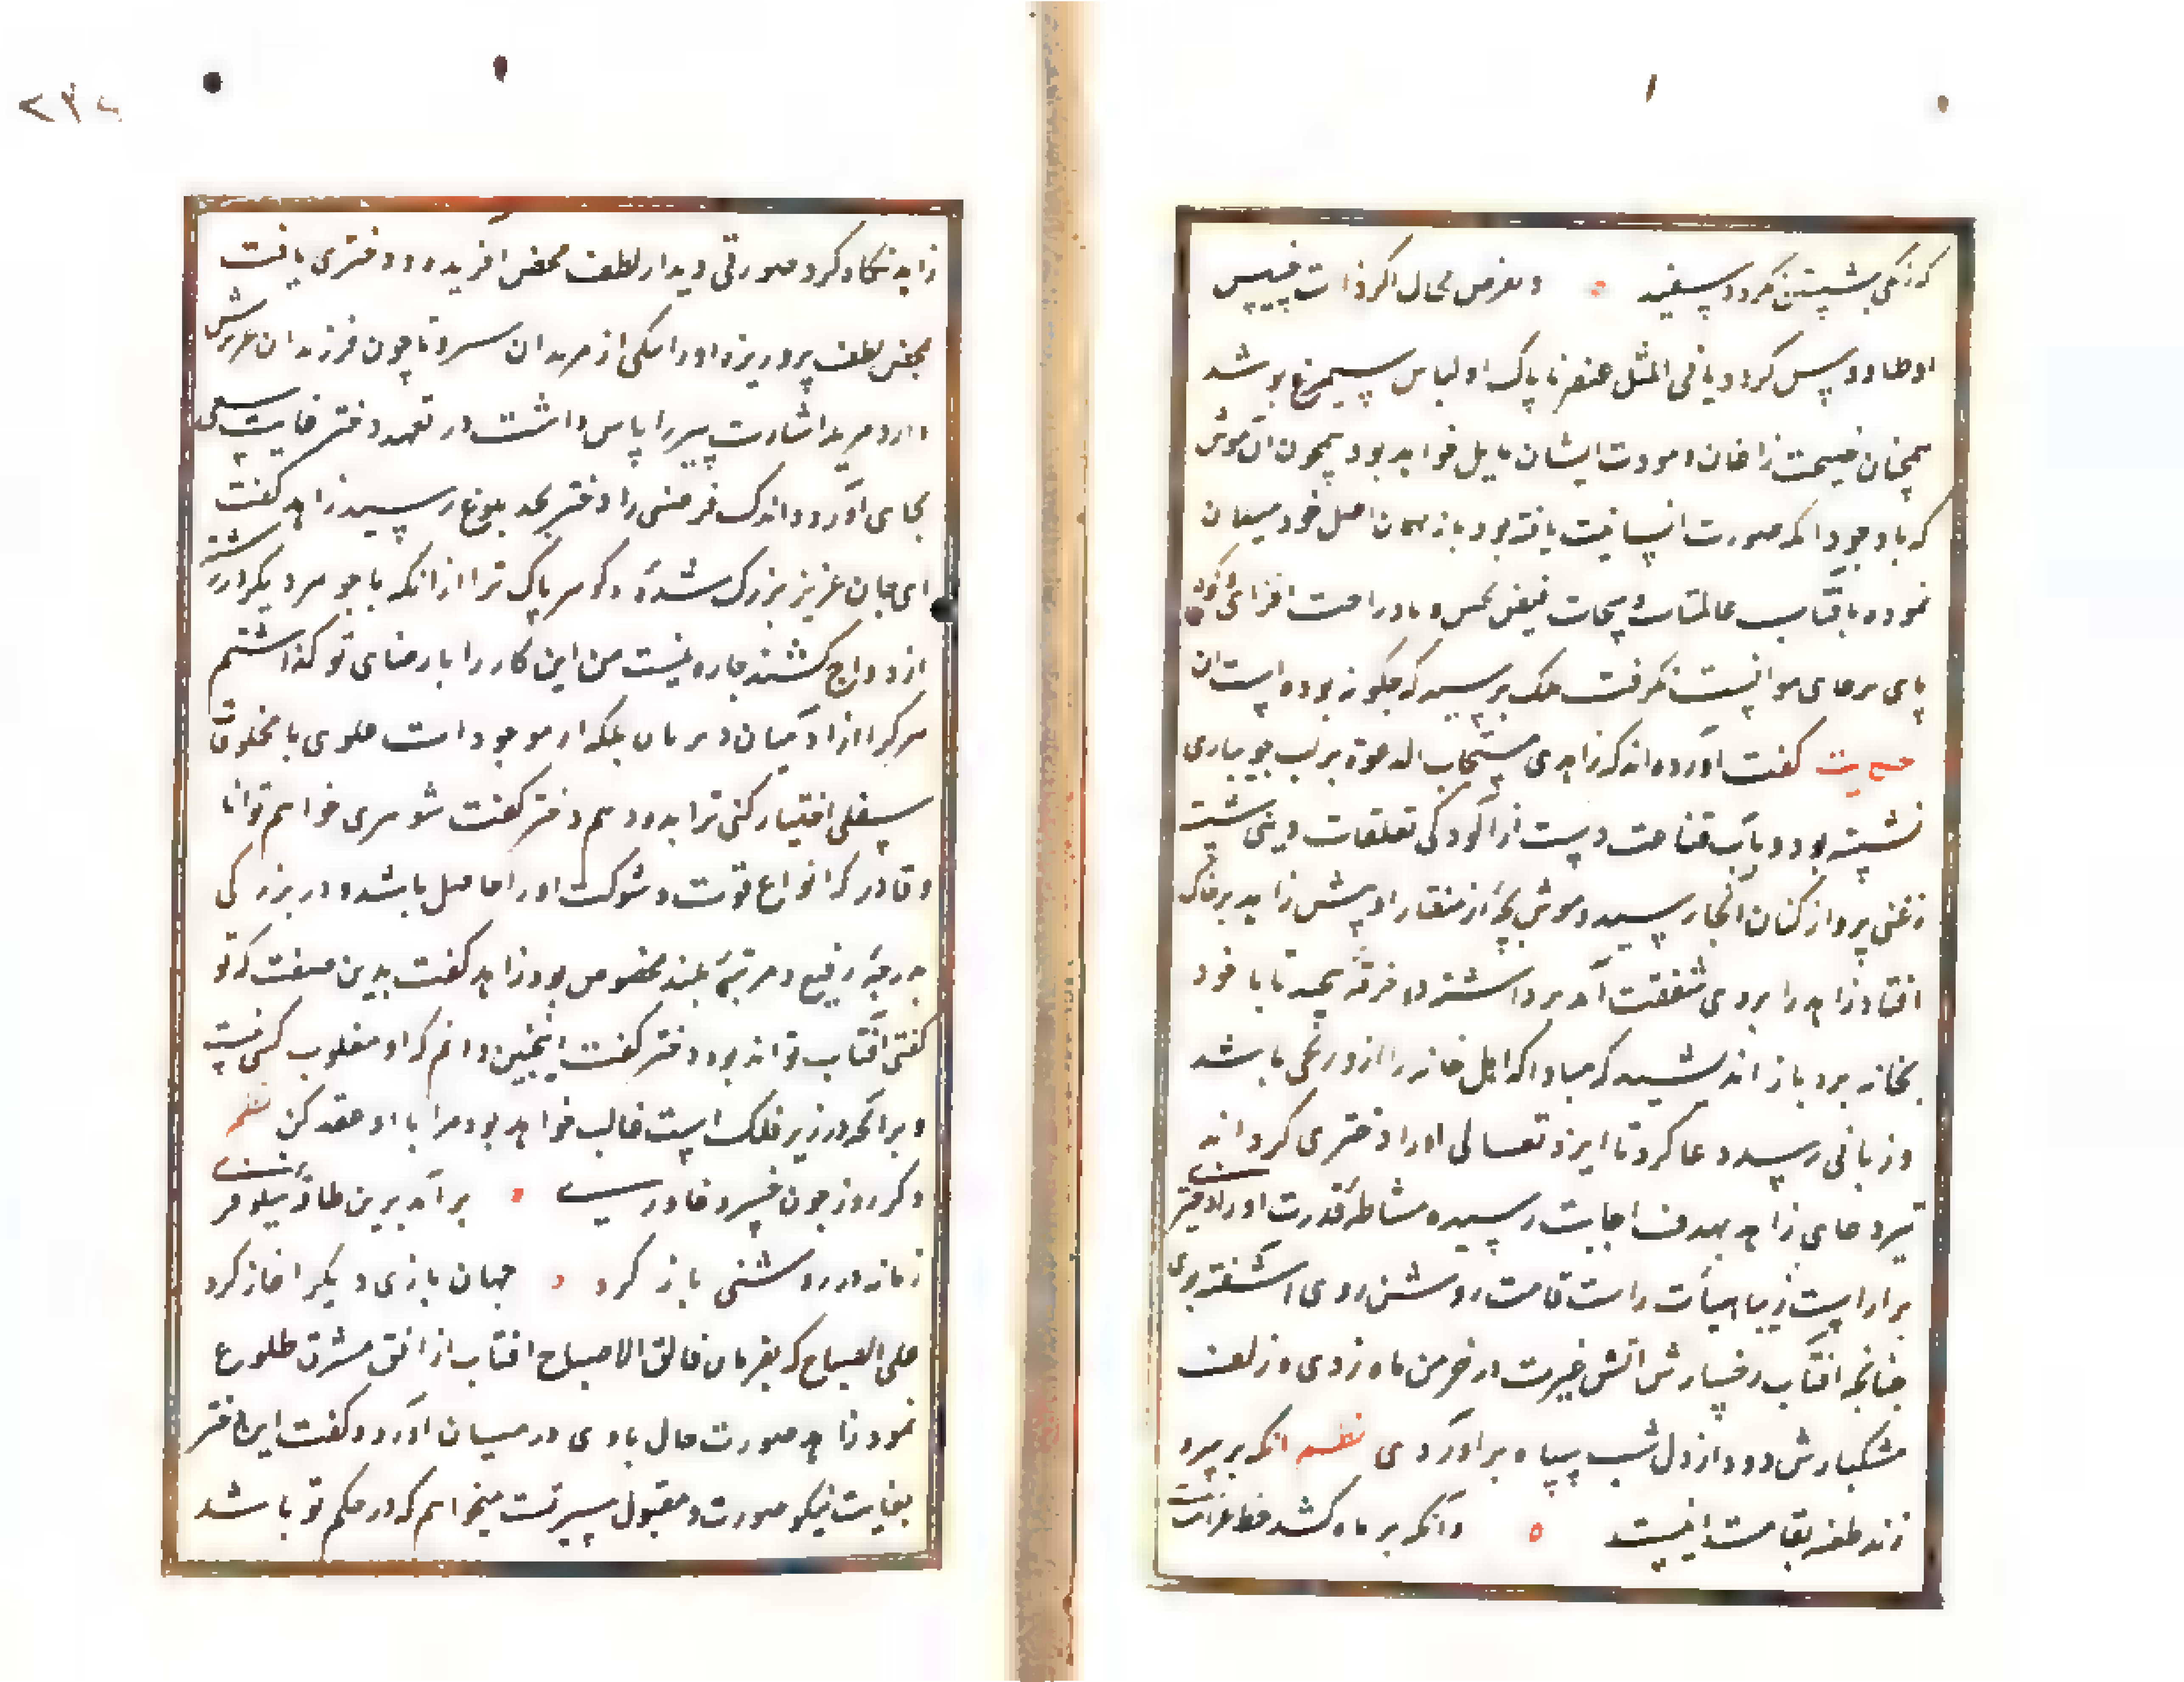 که زنگی بشستن نگردد سفید و بفرض محال اگر ذات خسیس
او طاووس گردد یا فی المثل عنصر ناپاک او لباس سیمرغ پوشد
همچنان بصحبت زاغان و مودت ایشان مایل خواهد بود همچون آن موش
که با وجود آنکه صورت انسانیت یافته بود باز همان اصل خود میلان
نموده بآفتاب عالمتاب و سحاب فیض بخش و باد راحت افزای و کوه
پای برجای موانست نگرفت ملک پرسید که چگونه بوده است آن
حکایت گفت آورده اند که زاهدی مستجاب الدعوة بر لب جویباری
نشسته بود و بآب قناعت دست از آلودگی تعلقات دینی شست
زغنی پرواز کنان آنجا رسید و موش بچهٔ از منقار او پیش زاهد بر خاک
افتاد زاهد را بروی شفقت آمد برداشته در خرقه پیچید تا با خود
بخانه برد باز اندیشید که مبادا که اهل خانه را از و رنجی باشد
و زیانی رسد دعا کرد تا ایزد تعالی او را دختری گرداند
تیر دعای زاهد بهدف اجابت رسیده مشاطهٔ قدرت او را دختر
بر آراست زیبا هیأت راست قامت روشن روی آشفته موی
چنانچه آفتاب رخسارش آتش غیرت در خرمن ماه زدی و زلف
مشکبارش دود از دل شب سیاه برآوردی نظم آنکه بر سرو
زند طعنه بقامت اینست وآنکه بر ماه کشد خط غرامت
زاهد نگاه کرد صورتی دید از لطف محض آفریده و دختری یافت
بمحض لطف پروریزه او را بیکی از مریدان سپرد تا چون فرزندان عزیزش
دارد مرید اشارت پیر را پاس داشت در تعهد دختر غایت سعی
بجای آورد و اندک فرصتی را دختر بحد بلوغ رسید زاهد گفت
ای جان عزیز بزرگ شدهٔ و گوهر پاک ترا از آنکه با جوهر دیگر در رشته
ازدواج کشند چاره نیست من این کار را با رضای تو گذاشتم
هرکرا از آدمیان و پریان بلکه از موجودات علوی یا مخلوقات
سفلی اختیار کنی ترا بدو دهم دختر گفت شوهری خواهم توانا
و قادر که انواع قوت و شوکت او را حاصل باشد و در بزرگی
بدرجهٔ رفیع و مرتبهٔ بلند مخصوص بود زاهد گفت بدین صفت که تو
گفتی آفتاب تواند بود دختر گفت اینچنین دانم که او مغلوب کسی نیست
و بر آنچه در زیر فلک است غالب خواهد بود مرا با او عقد کن نظم
دگر روز چون خسرو خاوری برآمد برین طاق نیلوفری
زمانه در روشنی باز کرد جهان بازی دیگر آغاز کرد
علی الصباح که بفرمان فالق الاصباح آفتاب از افق مشرق طلوع
نمود زاهد صورت حال با وی در میان آورد و گفت این دختر
بغایت نیکو صورت و مقبول سیرتست میخواهم که در حکم تو باشد